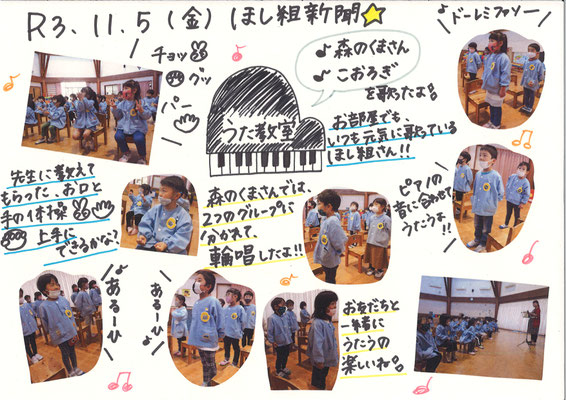 R3.11.5(金)ほし組新聞
チョッ
グッ
パー
♪森のくまさん
♪こおろぎ
を歌ったよ!!
ドーレミファソー
うた教室
お部屋でも、
いつも元気に歌っている
ほし組さん!!
先生に教えて
もらった、お口と
手の体操
上手に
できるかな?
森のくまさんでは、
2つのグループに
分かれて、
輪唱したよ!!
ピアノの
音に合わせて
うたうよ!!
あるーひ
あるーひ
お友だちと
一緒に
うたうの
楽しいね。